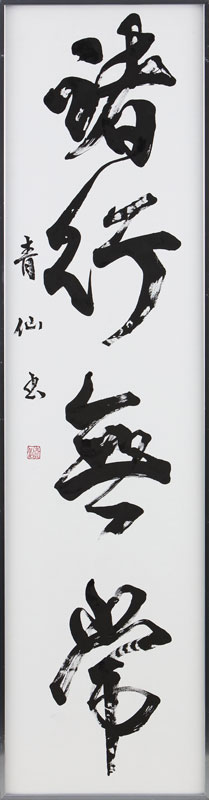 諸行無常
青仙書